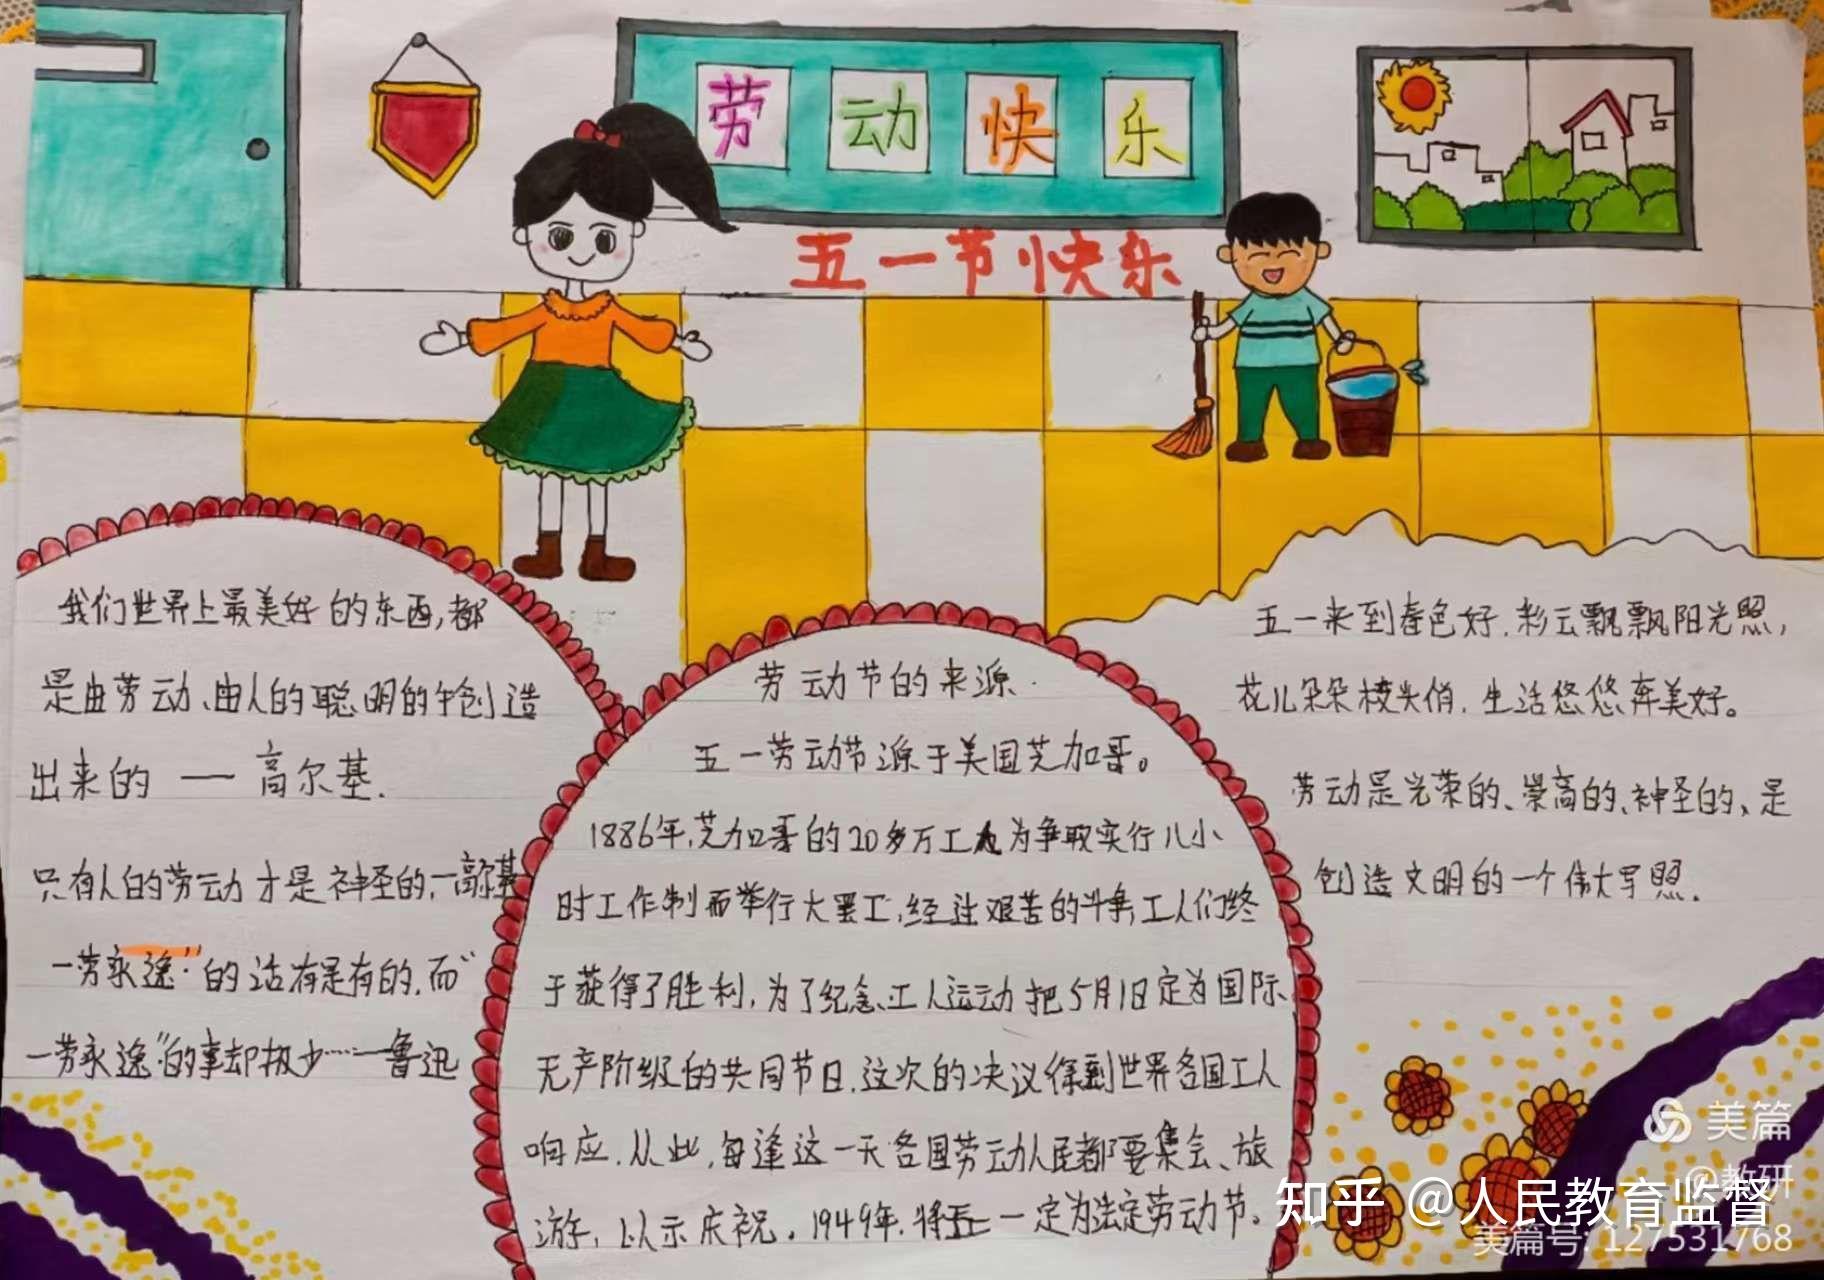 劳动快乐
五一节快乐
我们世界上最美好的东西,都
是由劳动、由人的聪明的手创造
出来的 — 高尔基.
只有人的劳动才是神圣的,一高尔基
一劳永逸"的话有是有的,而"
一劳永逸"的事却极少……鲁迅
劳动节的来源.
五一劳动节源于美国芝加哥。
1886年,芝加哥的20多万工人为争取实行八小
时工作制而举行大罢工,经过艰苦的斗争,工人们终
于获得了胜利,为了纪念工人运动把5月1日定为国际
无产阶级的共同节日.这次的决议得到世界各国工人
响应.从此,每逢这一天各国劳动人民都要集会、旅
游,以示庆祝。1949年.将五一定为法定劳动节。
五一来到春色好.彩云飘飘阳光照,
花儿朵朵枝头俏.生活悠悠奔美好。
劳动是光荣的、崇高的、神圣的、是
创造文明的一个伟大写照.
美篇
@教研
知乎 @人民教育监督
美篇号: 127531768